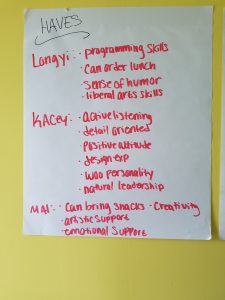 HAVES
Longyi: · programming skills
· Can order lunch
· sense of humor
· liberal arts skills
KACey: · active listening
· detail oriented
· positive attitude
· design exp
· woo personality
· natural leadership
MAI: · Can bring snacks · Creativity
· artistic support
· emotional support